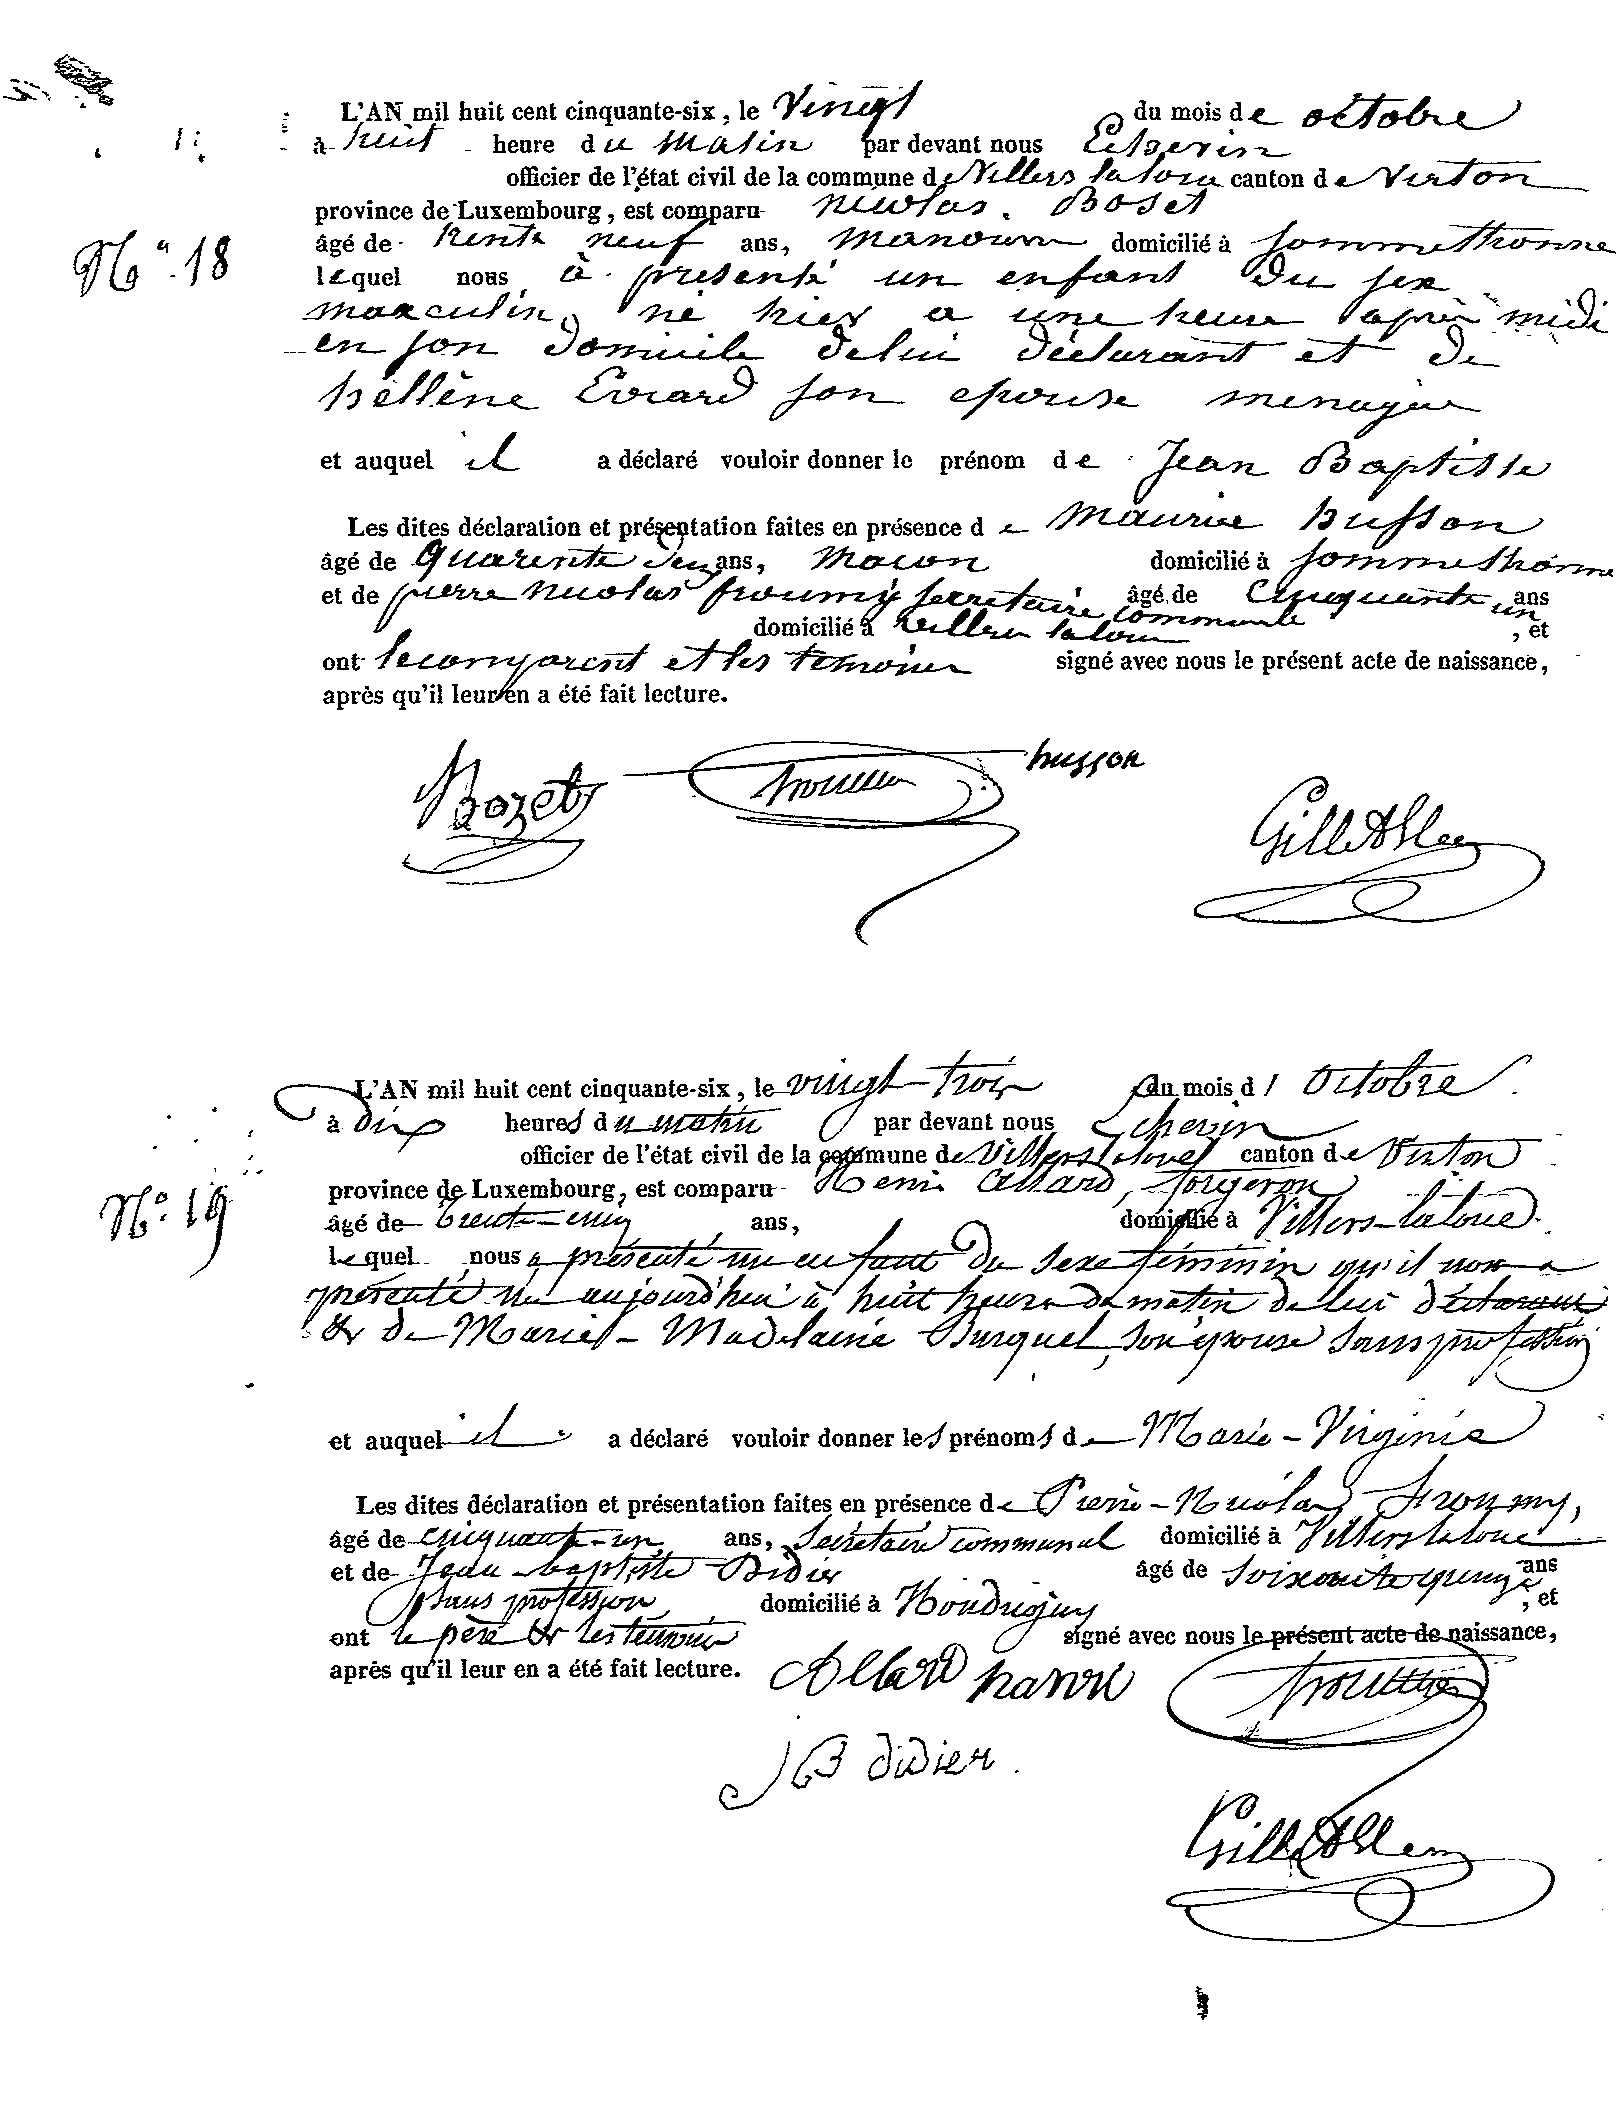 L'AN mil huit cent cinquante-six, le Vingt du mois de octobre
à huit heure du matin par devant nous Echevin
officier de l'état civil de la commune de Villers laloue canton de Virton
province de Luxembourg, est comparu nicolas Boset
N° 18
âgé de trente neuf ans, manouvre domicilié à Sommethonne
lequel nous à présenté un enfant du sex
masculin, né hier a une heure après midi
en son domicile de lui déclarant et de
hellène Evrard son epouse menagère
et auquel il a déclaré vouloir donner le prénom de Jean Baptiste
Les dites déclaration et présentation faites en présence de maurice husson
âgé de quarente deux ans, macon domicilié à Sommethonne
et de pierre nicolas froumy secretaire communale âgé de cinquante un ans
domicilié à Villers laloue, et
ont le comparent et les temoins signé avec nous le présent acte de naissance,
après qu'il leur en a été fait lecture.
Bozet froumy husson
L'AN mil huit cent cinquante-six, le vingt-trois du mois d' Octobre
à dix heures du matin par devant nous Echevin
officier de l'état civil de la commune de Villers laloue canton de Virton
province de Luxembourg, est comparu Henri Allard, forgeron
N° 19
âgé de trente-cinq ans, domicilié à Villers-laloue.
lequel nous a présenté un enfant du sexe féminin qu'il nous a
présenté né aujourd'hui à huit heures du matin de lui déclarant
& de Marie-Madelaine Burquel, son épouse sans profession
et auquel il a déclaré vouloir donner les prénoms de Marie-Virginie
Les dites déclaration et présentation faites en présence de Pierre-Nicolas Froumy,
âgé de cinquante-un ans, Secrétaire communal domicilié à Villers laloue
et de Jean-baptiste Didier âgé de soixante quinze ans
sans profession domicilié à Houdrigny, et
ont le père & les témoins signé avec nous le présent acte de naissance,
après qu'il leur en a été fait lecture.
Allard hanri froumy
JB didier.